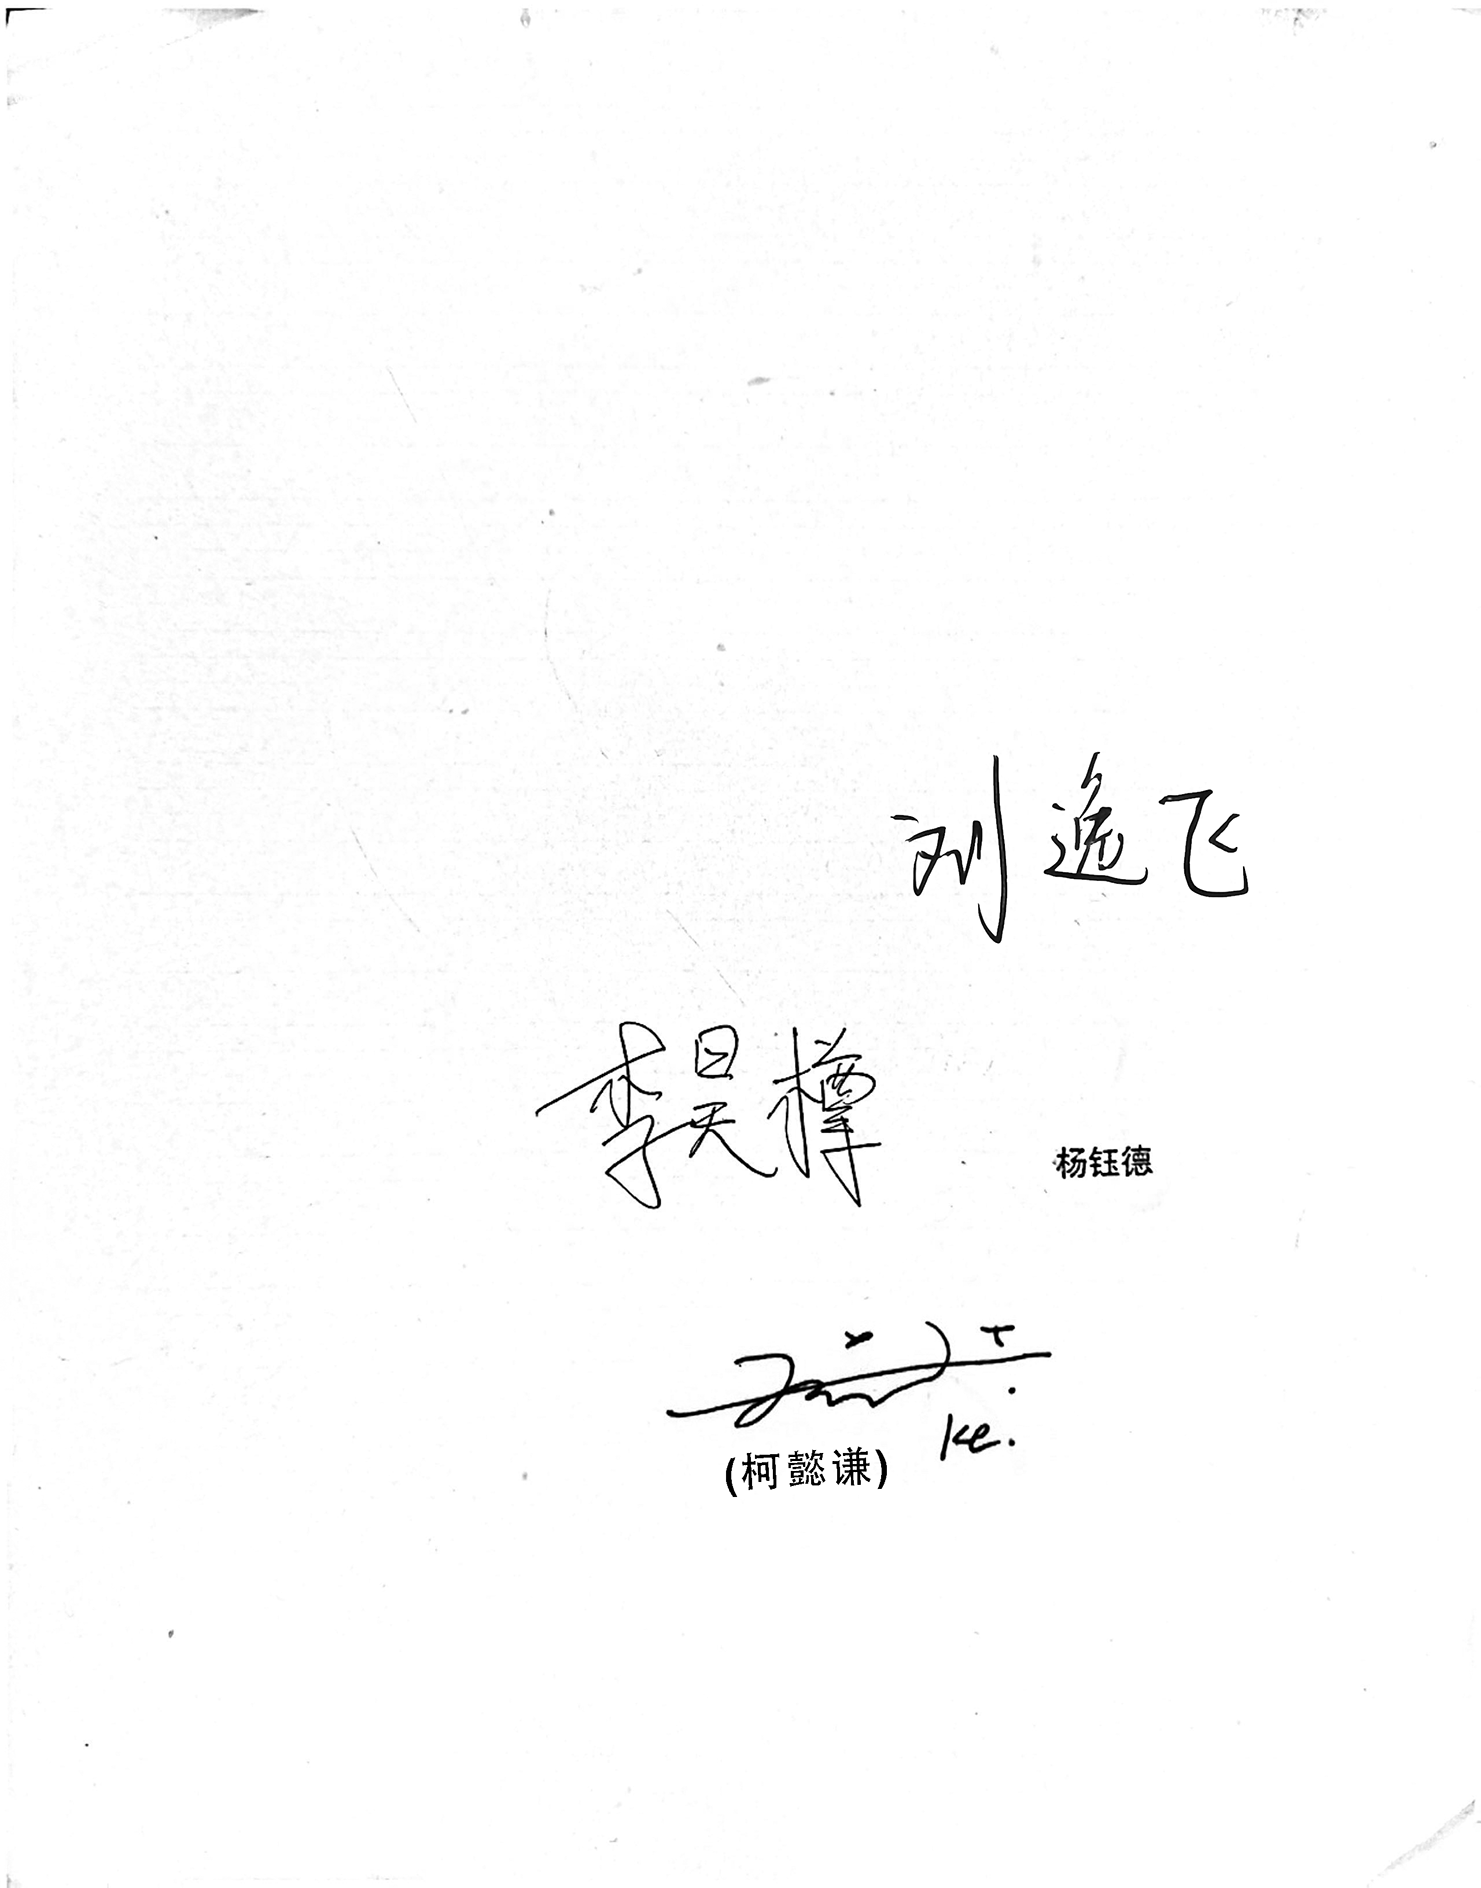 刘遥飞
李昊樽
杨钰德
Ke.
(柯懿谦)